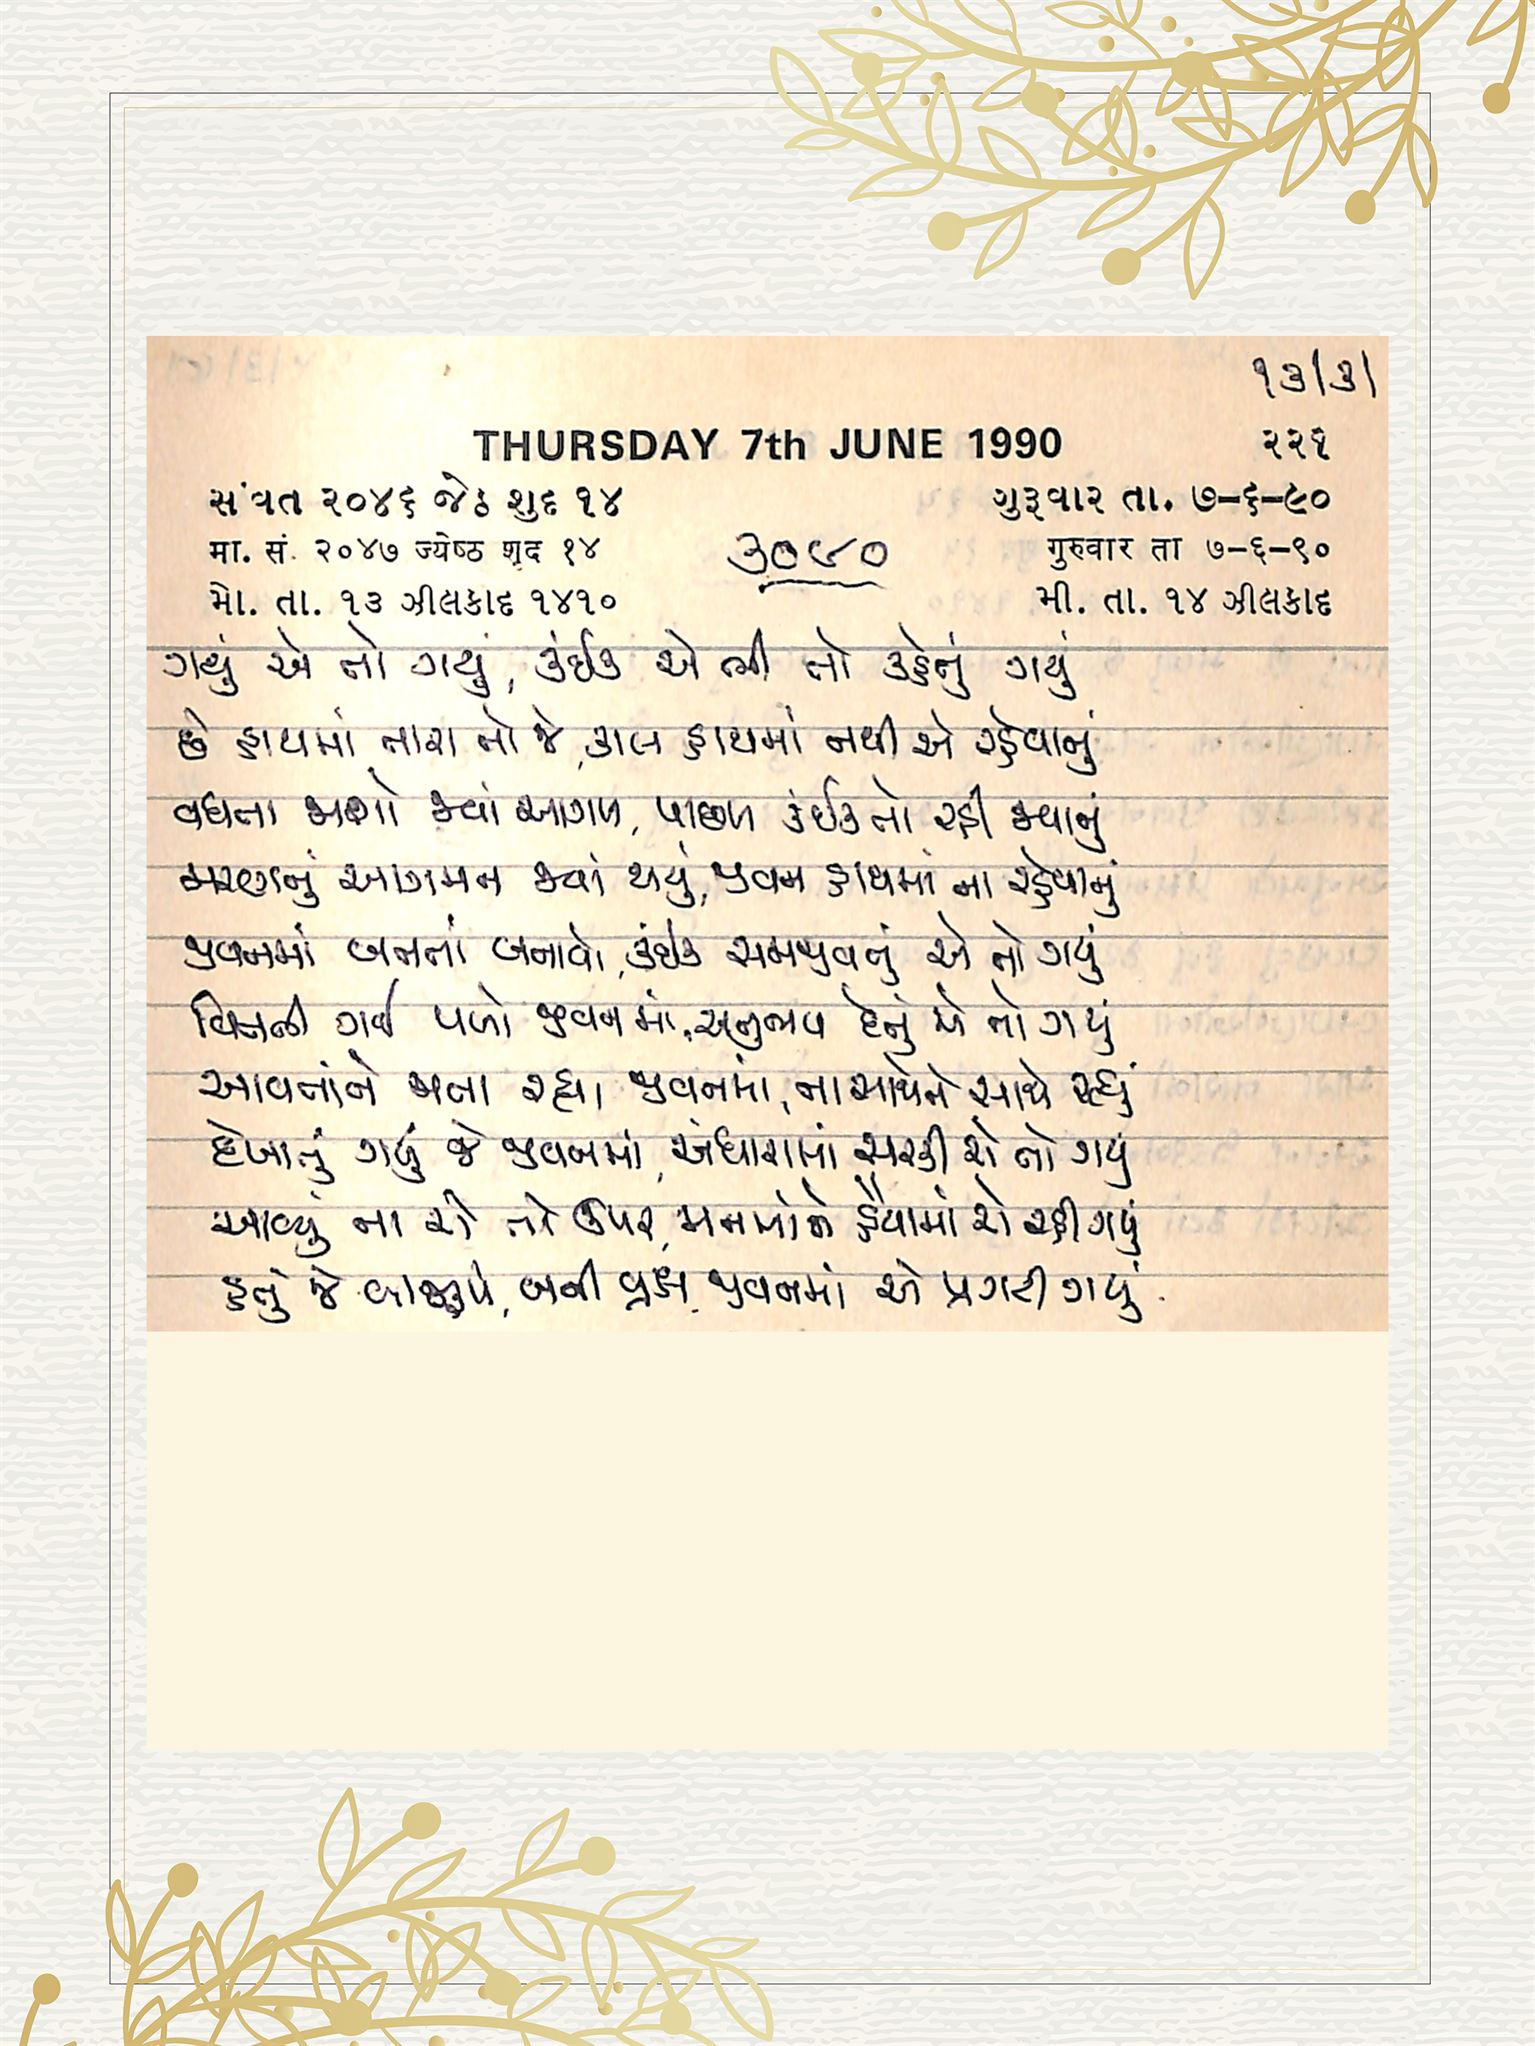 ૧૩/૩/
THURSDAY 7th JUNE 1990 ૨૨૧
સંવત ૨૦૪૬ જેઠ શુદ ૧૪ ગુરૂવાર તા. ૭-૬-૯૦
मा. सं. २०४७ ज्येष्ठ शुद १४ गुरुवार ता ७-६-९०
મો. તા. ૧૩ ઝીલકાદ ૧૪૧૦ મી. તા. ૧૪ ઝીલકાદ
૩૦૯૦
ગયું એ તો ગયું, કંઈક એ ભી તો કહેતું ગયું
છે હાથમાં તારા તો જે, કાલ હાથમાં નથી એ રહેવાનું
વધતા જાશો જ્યાં આગળ, પાછળ કંઈક તો રહી જવાનું
મરણનું આગમન જ્યાં થયું, જીવન હાથમાં ના રહેવાનું
જીવનમાં બનતાં બનાવો, કંઈક સમજીવનું એ તો ગયું
વિતતી ગઈ પળો જીવનમાં, અનુભવ દેતું એ તો ગયું
આવતાંને જાતા રહ્યા જીવનમાં, ના સાથેને સાથે રહ્યું
દેખાતું ગયું જે જીવનમાં, અંધારામાં સરકી એ તો ગયું
આવ્યું ના એ તો ઉપર, મનમાંને હૈયામાં એ રહી ગયું
હતું જે બીજરૂપે, બની વૃક્ષ જીવનમાં એ પ્રગટી ગયું